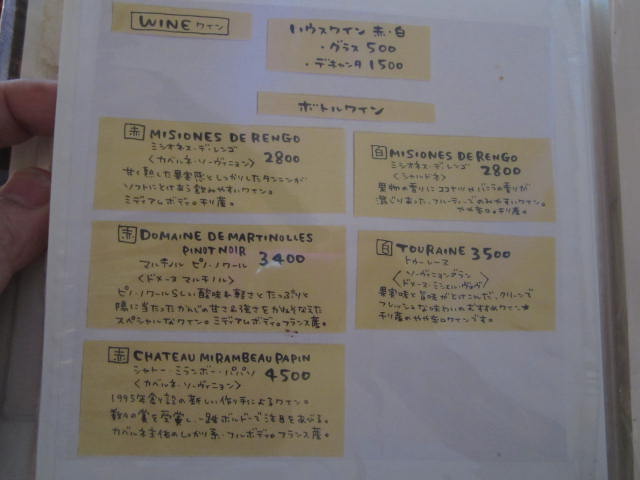 WINE ワイン
ハウスワイン 赤・白
・グラス 500
・デキャンタ 1500
ボトルワイン
赤 MISIONES DE RENGO
ミシオネス・デ・レンゴ
〈カベルネ・ソーヴィニョン〉 2800
甘く熟した果実感としっかりしたタンニンが
ソフトにとけあう飲みやすいワイン。
ミディアムボディ。チリ産。
白 MISIONES DE RENGO
ミシオネス・デ・レンゴ 2800
〈シャルドネ〉
果物の香りにココナッツやバニラの香りが
混ざりあった、フルーティーでのみやすいワイン。
やや辛口。チリ産。
赤 DOMAINE DE MARTINOLLES
PINOT NOIR 3400
マルチノル ピノ・ノワール
〈ドメーヌ マルチノル〉
ピノ・ノワールらしい酸味、軽さとたっぷりと
陽に当たったかんじの甘さ&強さをかねそなえた
スペシャルなワイン。ミディアムボディ。フランス産。
白 TOURAINE 3500
トゥーレーヌ
ソーヴィニョンブラン
〈ドメーヌ・ミシェル・ヴォヴ〉
果実味と旨味がとけこんだ、クリーンで
フレッシュな味わいのおすすめワイン★
チリ産のやや辛口ワインです。
赤 CHATEAU MIRAMBEAU PAPIN
シャトー・ミランボー・パパン
〈カベルネ・ソーヴィニョン〉 4500
1995年創設の新しい作り手によるワイン。
数々の賞を受賞し、一躍ボルドーで注目をあびる。
カベルネ主体のしっかり系・フルボディ。フランス産。